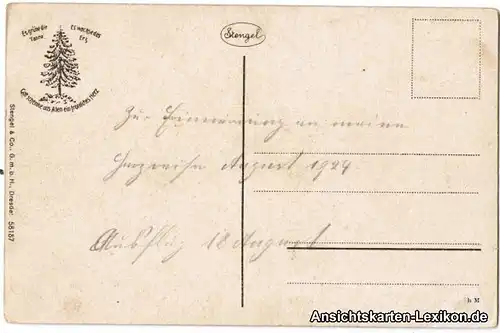 Es grüne die Tanne,
Es wachse das Erz,
Gott schenke uns Allen ein fröhliches Herz
Stengel
Stengel & Co., G. m. b. H., Dresden 58157
Zur Erinnerung an meine
Harzreise August 1924
Ausflug 18 August
b M
Ansichtskarten-Lexikon.de